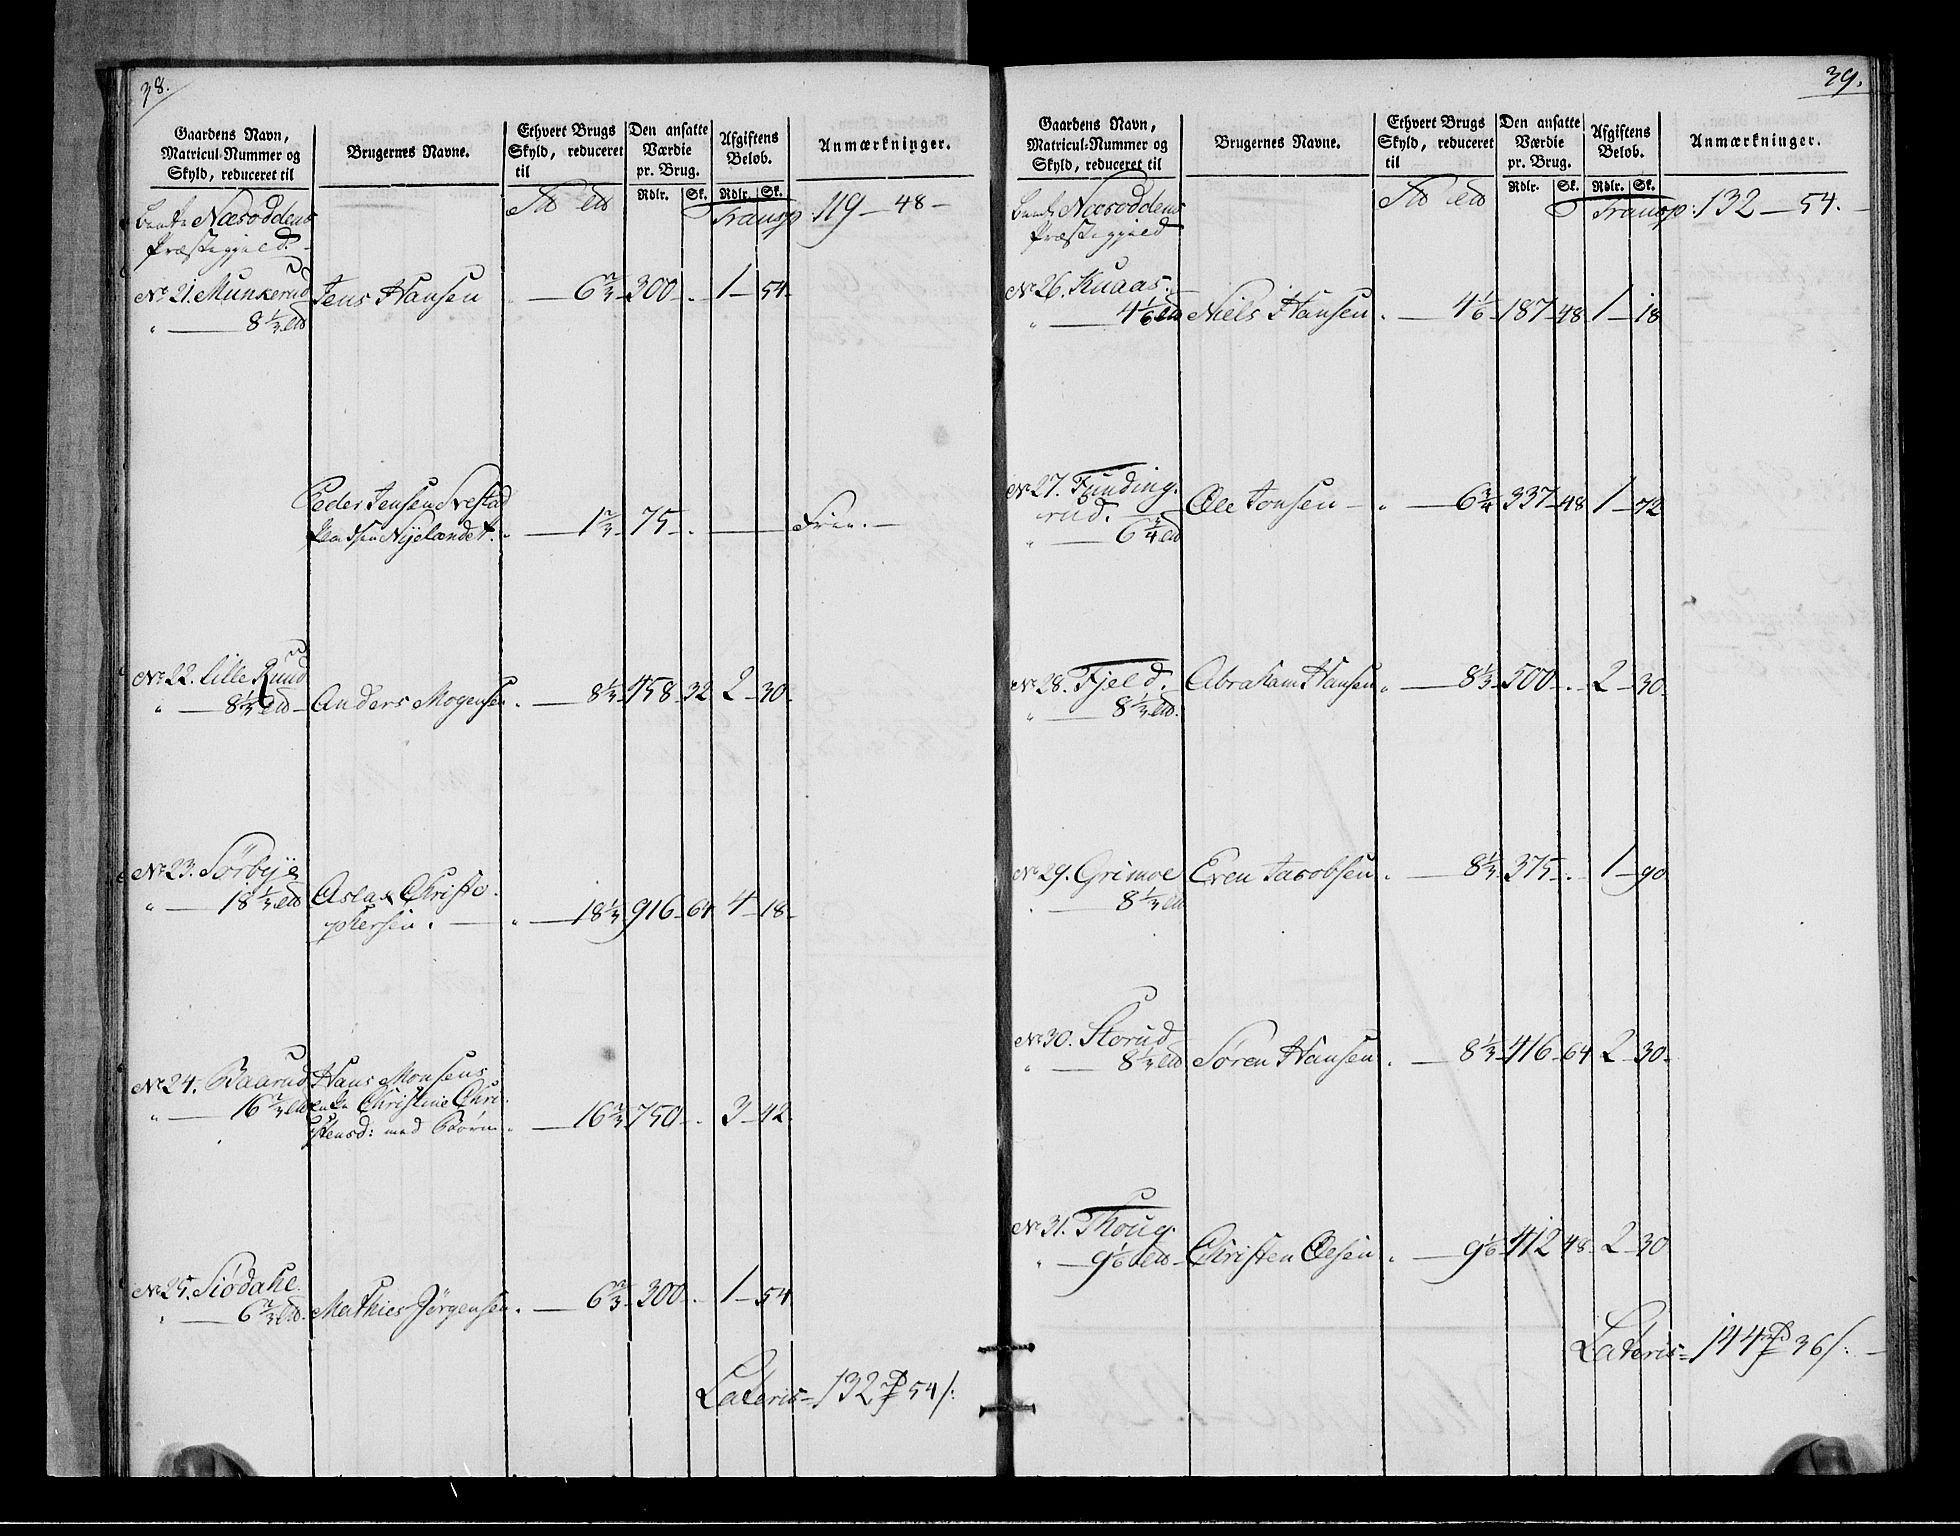 38.
Gaardens Navn,
Matricul-Nummer og
Skyld, reduceret til
Brugernes Navne.
Ethvert Brugs
Skyld, reduceret
til
Den ansatte
Værdie
pr. Brug.
Rdlr. Sk.
Afgiftens
Beløb.
Rdlr. Sk.
Anmærkninger.
Næsoddens
Præstegjeld.
Transp: 119 - 48 -
No 21. Munkerud Jens Hansen 6 2/3 300 - . 1 - 54.
8 1/3
Peder Jensen Svestad
Pladsen Nyelændet. 1 2/3 75 - . Frie.
No 22. Lille Ruud
8 1/3 Anders Mogensen 8 1/3 458 32 2 - 30.
No 23. Sörbye
18 1/3 Aslak Christo-
phersen. 18 1/3 916 - 64 4 - 18 -
No 24. Baarud Hans Monsens
16 2/3 Enke Christine Chri-
stensd: med Børn 16 2/3 750 - . 3 - 42.
No 25. Siödahl.
6 2/3 Mathies Jörgensen. 6 2/3 300 - . 1 - 54
Lateris = 132 54
39.
Gaardens Navn,
Matricul-Nummer og
Skyld, reduceret til
Brugernes Navne.
Ethvert Brugs
Skyld, reduceret
til
Den ansatte
Værdie
pr. Brug.
Rdlr. Sk.
Afgiftens
Beløb.
Rdlr. Sk.
Anmærkninger.
Næsoddens
Præstegjeld
Transp: 132 - 54.
No 26. Knaas.
4 1/6 Niels Hansen 4 1/6 187 48 1 - 18
No 27. Funding-
rud. Ole Jonsen 6 3/4 337 - 48 1 - 72
6 3/4
No 28. Fjeld. Abraham Hansen 8 1/3 500 - . 2 - 30
8 1/3
No 29. Grimoe Even Jacobsen 8 1/3 375 - . 1 - 90
8 1/3
No 30. Storud
8 1/3 Søren Hansen 8 1/3 416 - 64 2 - 30.
No 31. Thoug.
9 1/6 Christen Olsen 9 1/6 412 48 2 - 30
Lateris = 144 36